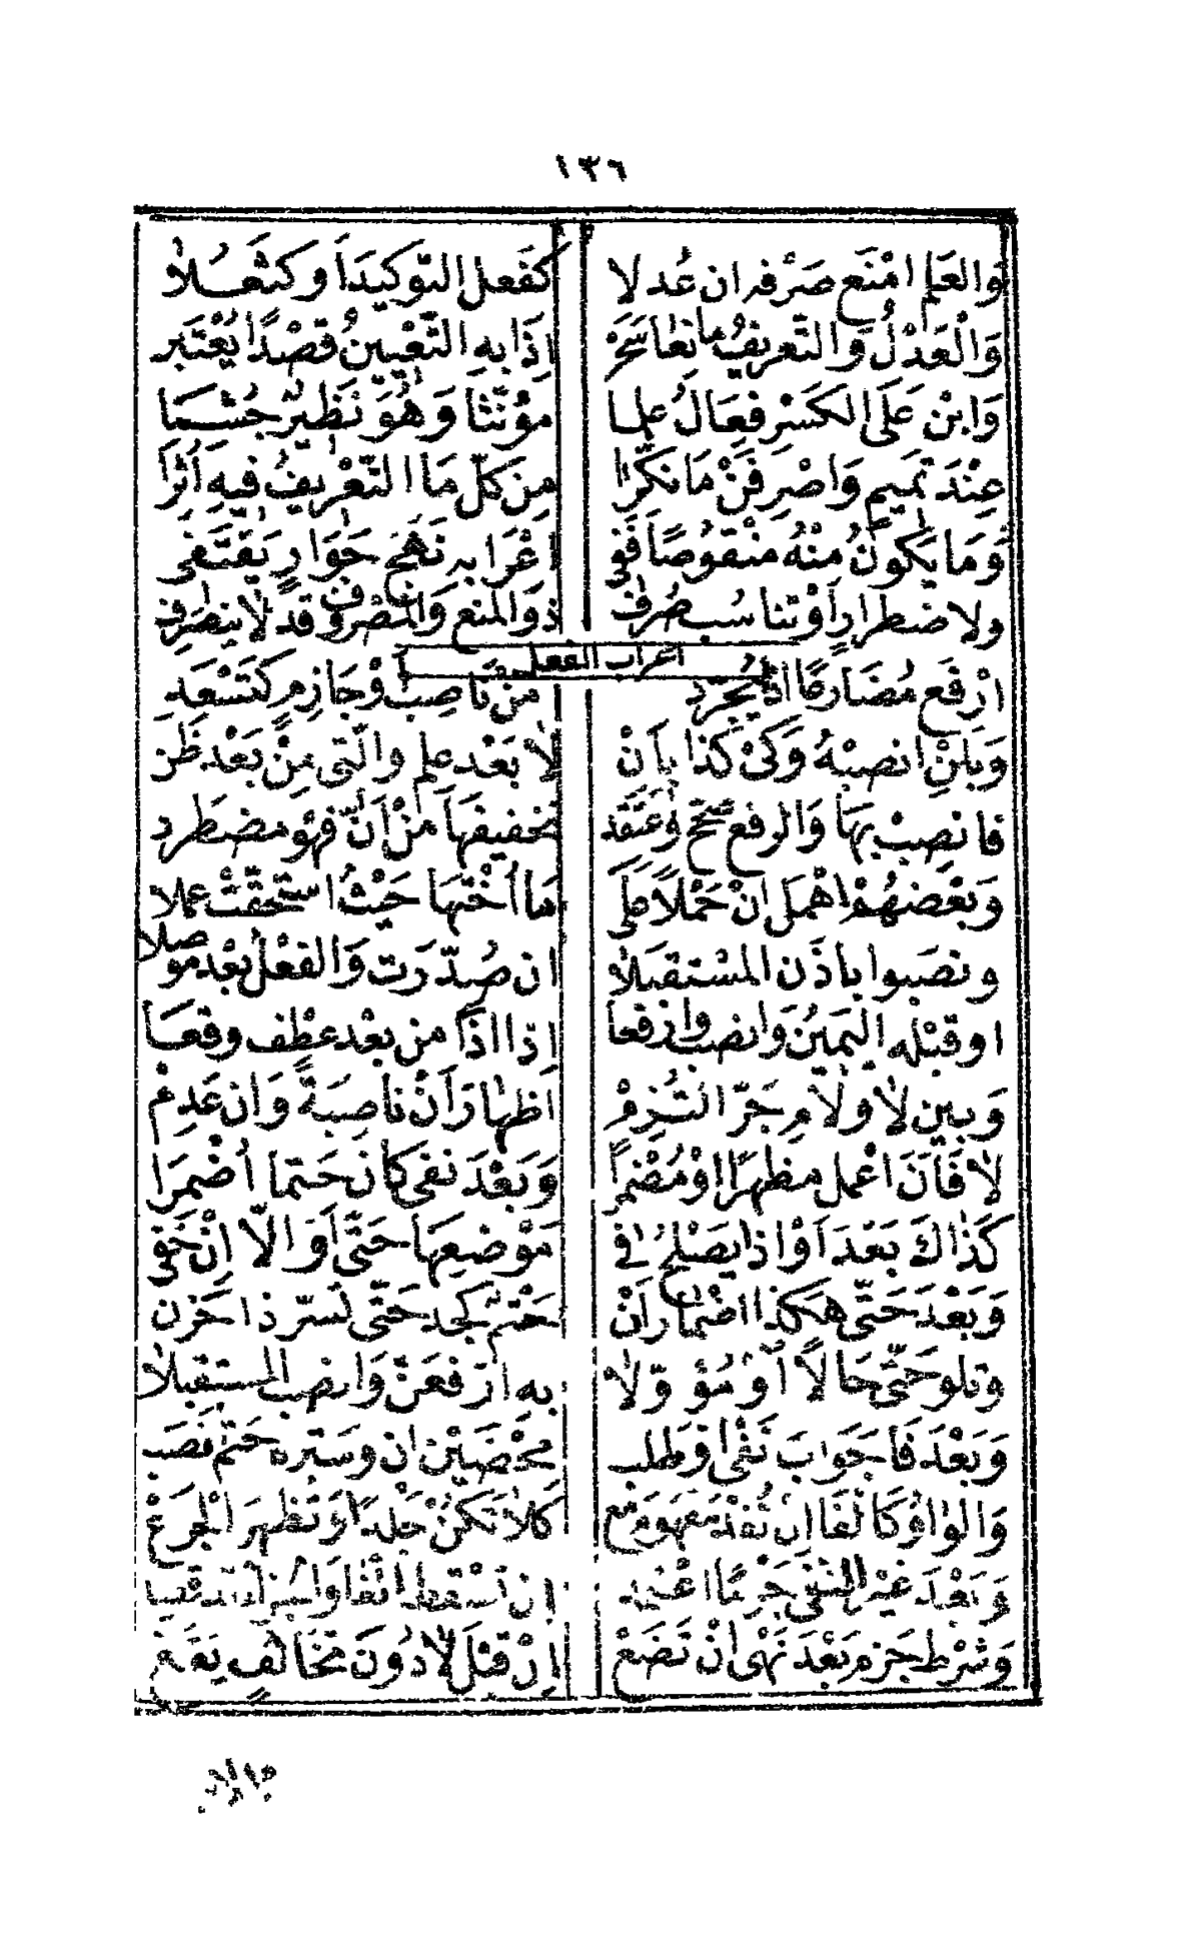 ١٣٦
وَالعَلَم امْنَع صَرْفه ان عُدلا كفَعل التّوكيدَ اَو كثعَلاٰ
وَالْعَدْلُ وَالتّعريفُ مانعَا سَحَرْ اِذَا بهِ التّعْيِينُ قصْدًا يُعْتَبر
وَابْن عَلَى الكَسْر فعَالُ علما مؤنّثا وَهُوَ نَظيرُ جُشَما
عِنْدَ تمَيم وَاصْرفَنْ مَا نكّرَا مِن كلّ مَا التّعْريفُ فيهِ أثرَا
وَمَا يَكونُ منْهُ منْقوُصًا فَفى اعْرَابه نَهْجَ جَوَارٍ يَقتَفى
ولاضطرارٍ اَوْ تناسُب صُرفْ ذو المنع وَالمَصْروف قد لاٰ ينصَرِف
اعراب الفعل
ارْفَع مُضَارعًا اذا يُجَرّد من نَاصِب وْجَازم كتَسْعَد
وَبلنِ انصبْهُ وَكىْ كذَا بأنْ لاٰ بَعْد علم والّتى مِنْ بَعْد ظَن
فانصِبْ بهَا وَالرفع صَحّحْ وَعتَقد تخفيفهَا منْ اَنّ فهْو مضطرد
وَبَعْضهُمْ اهْمَل انْ حَمْلاً عَلى مَا اُخْتهَا حَيْثُ اسْتحَقّتْ عملا
ونصَبوا باذَن المسْتقبَلاٰ ان صُدّرَت وَالفعْل بَعْد موصلا
اوقبْله اليَمَيُن وَانصب وارفعا اِذا اذًا من بعْد عطْف وقعَا
وَبين لاٰ ولاٰم جَرّ التُزمْ اظهارَ اَنْ ناصِبَةً وَان عَدِمْ
لاٰ فَأنَ اعْمل مظهرًا اوْ مُضْمرًا وَبَعْدَ نفى كانَ حَتما أضمِرَا
كذَاكَ بَعْدَ اَوْ اذا يَصْلُحُ فى مَوْضعِهَا حَتَّى اَو الاّ انْ خَفى
وَبَعْدَ حَتّى هكذا اضْمار اَنْ حَتْمٌ كجد حَتّى تسرّ ذا حَزن
وتلو حَتّى حَالاً أوْ مُؤوّلاٰ به اَرْفعَنّ وَانصب المستقبلاٰ
وَبَعْدَ فَا جَوَابَ نَفْى اوْ طلب محْضَيْن ان وسَتره حَتم نصَب
وَالواوُ كَالفَا ان تُفدْ مَفهومَ مَع كلاٰ تكنْ جَلدًا وَتظهرَ الجزَعْ
وَبَعْدَ غيْر النفى جَزْمًا اعْتمد ان تسْقط الفا وَالجزاء قد قصد
وَشرْط جَزم بَعْدَ نَهْى انْ تَضَعْ اِنْ قبْلَ لاٰ دُونَ تخَالفٍ يقَعْ